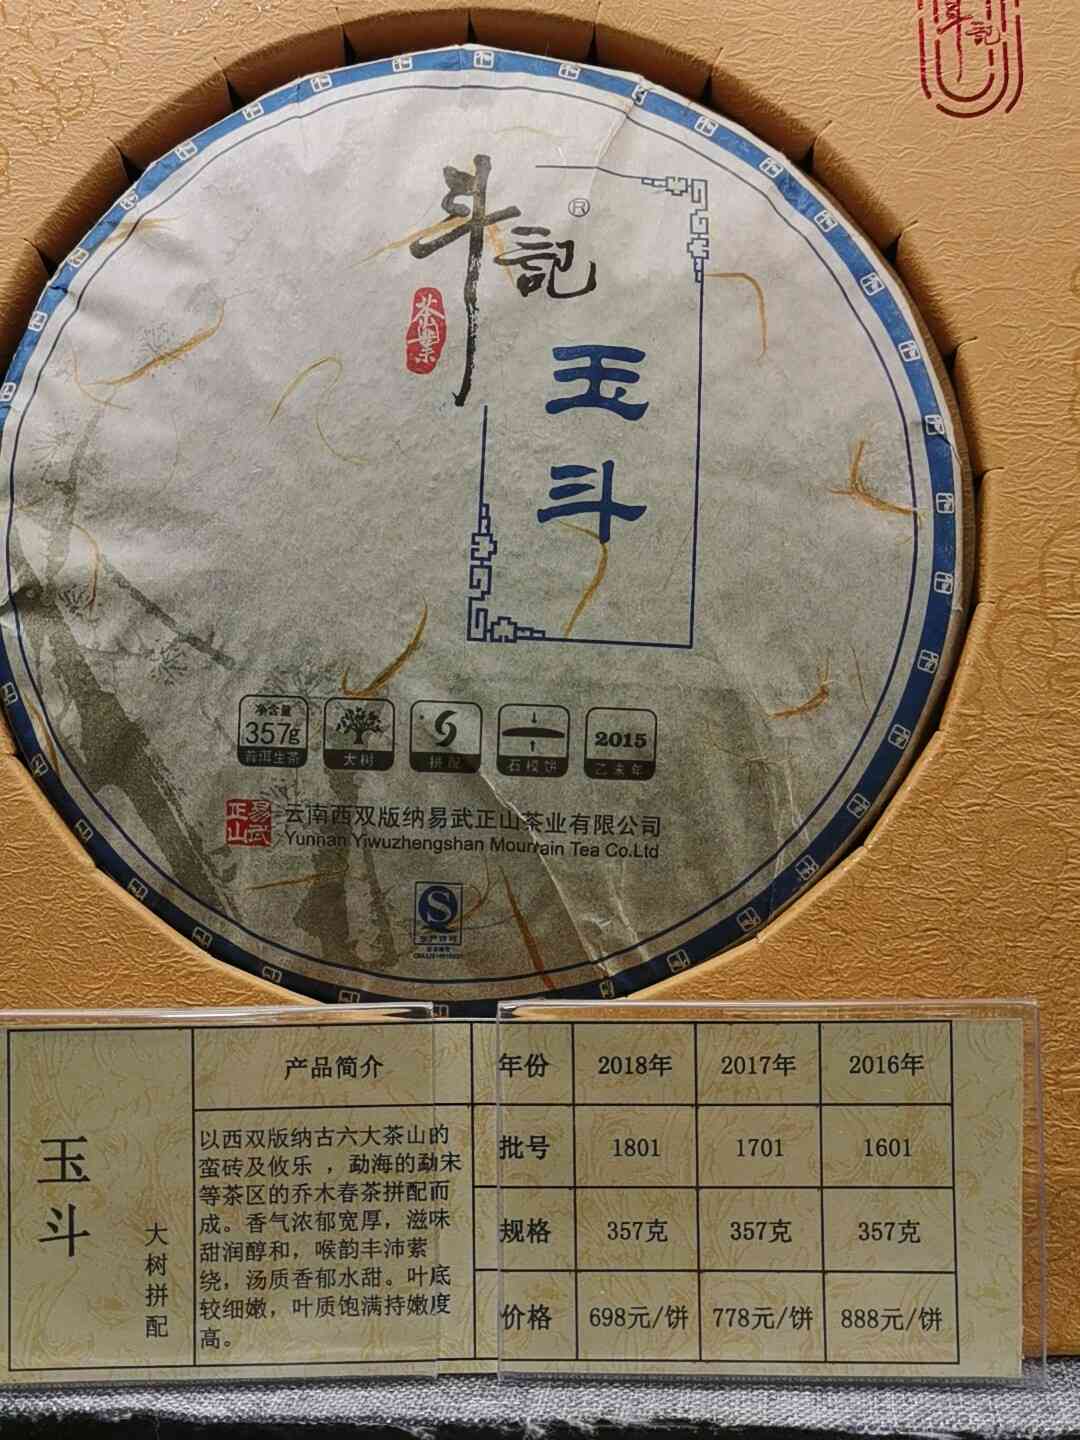 斗記
斗記
®
茶業
玉斗
净含量
357g
普洱生茶
大树
拼配
石模饼
2015
乙未年
易武
正山
云南西双版纳易武正山茶业有限公司
Yunnan Yiwuzhengshan Mountain Tea Co.Ltd
玉斗
大树拼配
产品简介
以西双版纳古六大茶山的
蛮砖及攸乐，勐海的勐宋
等茶区的乔木春茶拼配而
成。香气浓郁宽厚，滋味
甜润醇和，喉韵丰沛萦
绕，汤质香郁水甜。叶底
较细嫩，叶质饱满持嫩度
高。
年份 2018年 2017年 2016年
批号 1801 1701 1601
规格 357克 357克 357克
价格 698元/饼 778元/饼 888元/饼